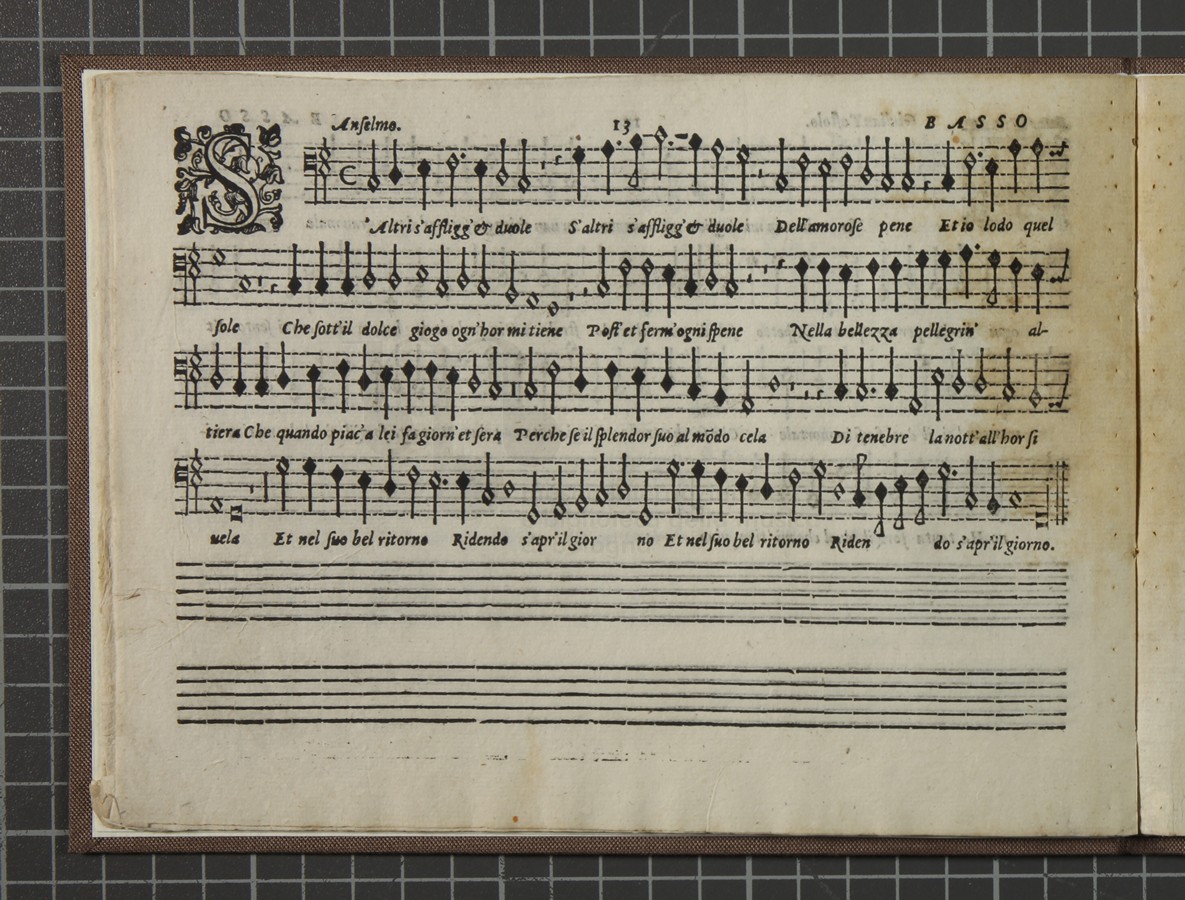 Anselmo. 13 BASSO
S'Altri s'affligg' & duole S'altri s'affligg' & duole Dell'amorose pene Et io lodo quel
sole Che sott'il dolce giogo ogn'hor mi tiene Post' et ferm'ogni spene Nella bellezza pellegrin' al-
tiera Che quando piac'a lei fa giorn' et sera Perche se il splendor suo al mõdo cela Di tenebre la nott' all'hor si
uela Et nel suo bel ritorno Ridendo s'apr'il gior no Et nel suo bel ritorno Riden do s'apr'il giorno.